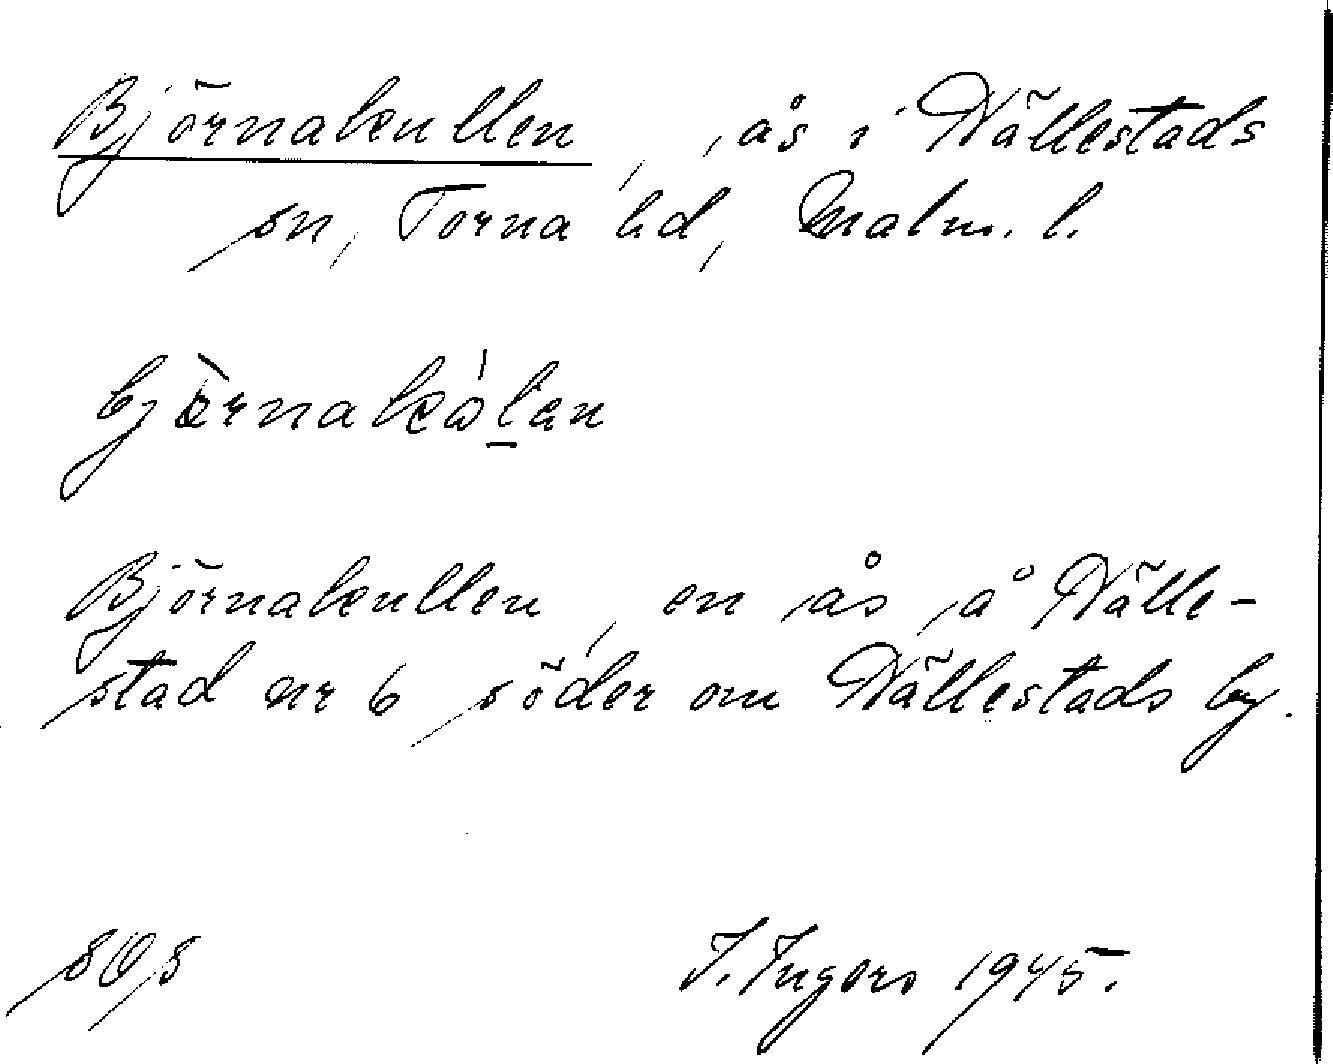 Björnakullen, ås i Hällestads
sn, Torna hd, Malm. l.
Björnakullen, en ås å Hälle-
stad nr 6 söder om Hällestads by.
808 I. Ingers 1945.